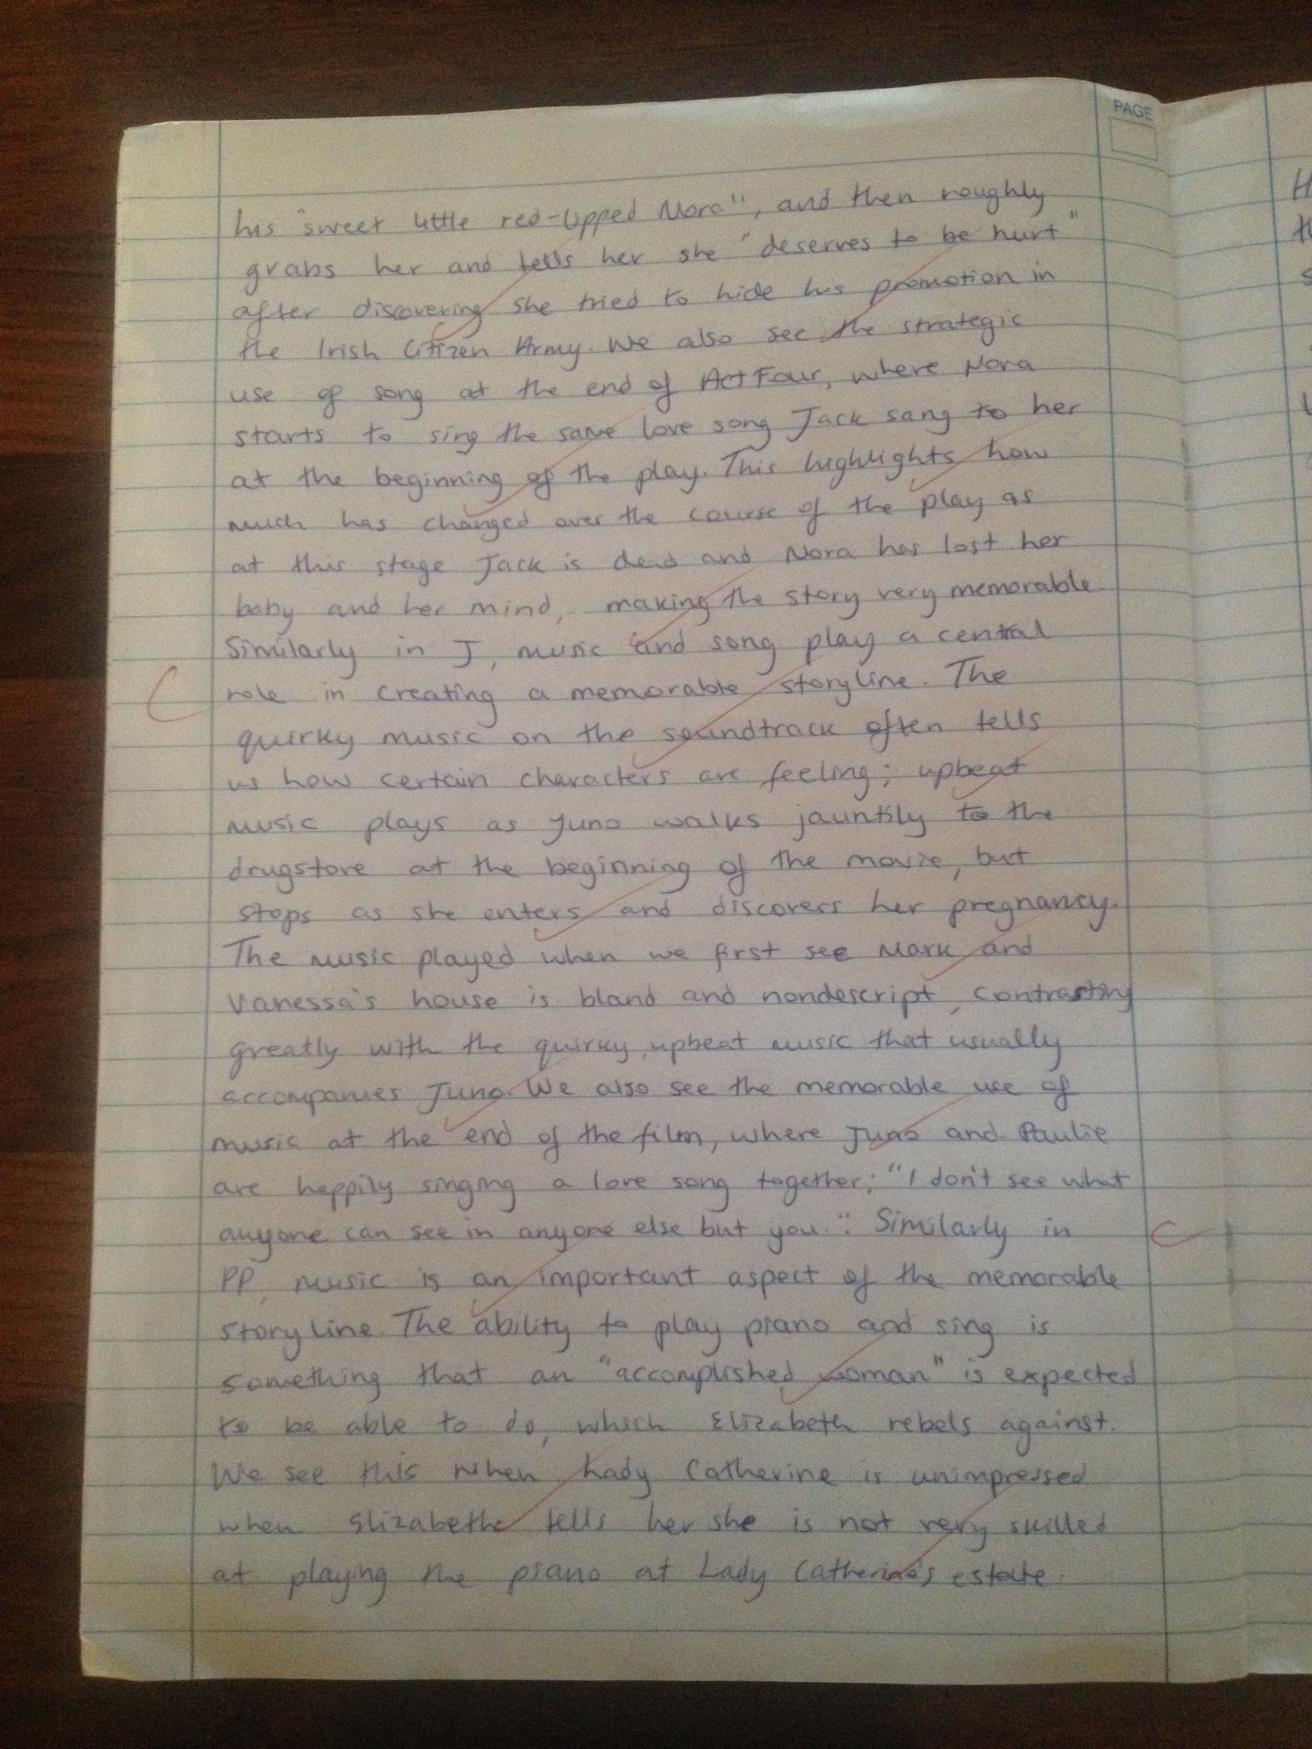 PAGE
his "sweet little red-lipped Nora", and then roughly
grabs her and tells her she "deserves to be hurt"
after discovering she tried to hide his promotion in
the Irish Citizen Army. We also see the strategic
use of song at the end of Act Four, where Nora
starts to sing the same love song Jack sang to her
at the beginning of the play. This highlights how
much has changed over the course of the play as
at this stage Jack is dead and Nora has lost her
baby and her mind, making the story very memorable.
Similarly in J, music and song play a central
C
role in creating a memorable storyline. The
quirky music on the soundtrack often tells
us how certain characters are feeling; upbeat
music plays as Juno walks jauntily to the
drugstore at the beginning of the movie, but
stops as she enters and discovers her pregnancy.
The music played when we first see Mark and
Vanessa's house is bland and nondescript, contrasting
greatly with the quirky, upbeat music that usually
accompanies Juno. We also see the memorable use of
music at the end of the film, where Juno and Paulie
are happily singing a love song together; "I don't see what
anyone can see in anyone else but you.". Similarly in
C
PP, music is an important aspect of the memorable
storyline. The ability to play piano and sing is
something that an "accomplished woman" is expected
to be able to do, which Elizabeth rebels against.
We see this when Lady Catherine is unimpressed
when Elizabeth tells her she is not very skilled
at playing the piano at Lady Catherine's estate.